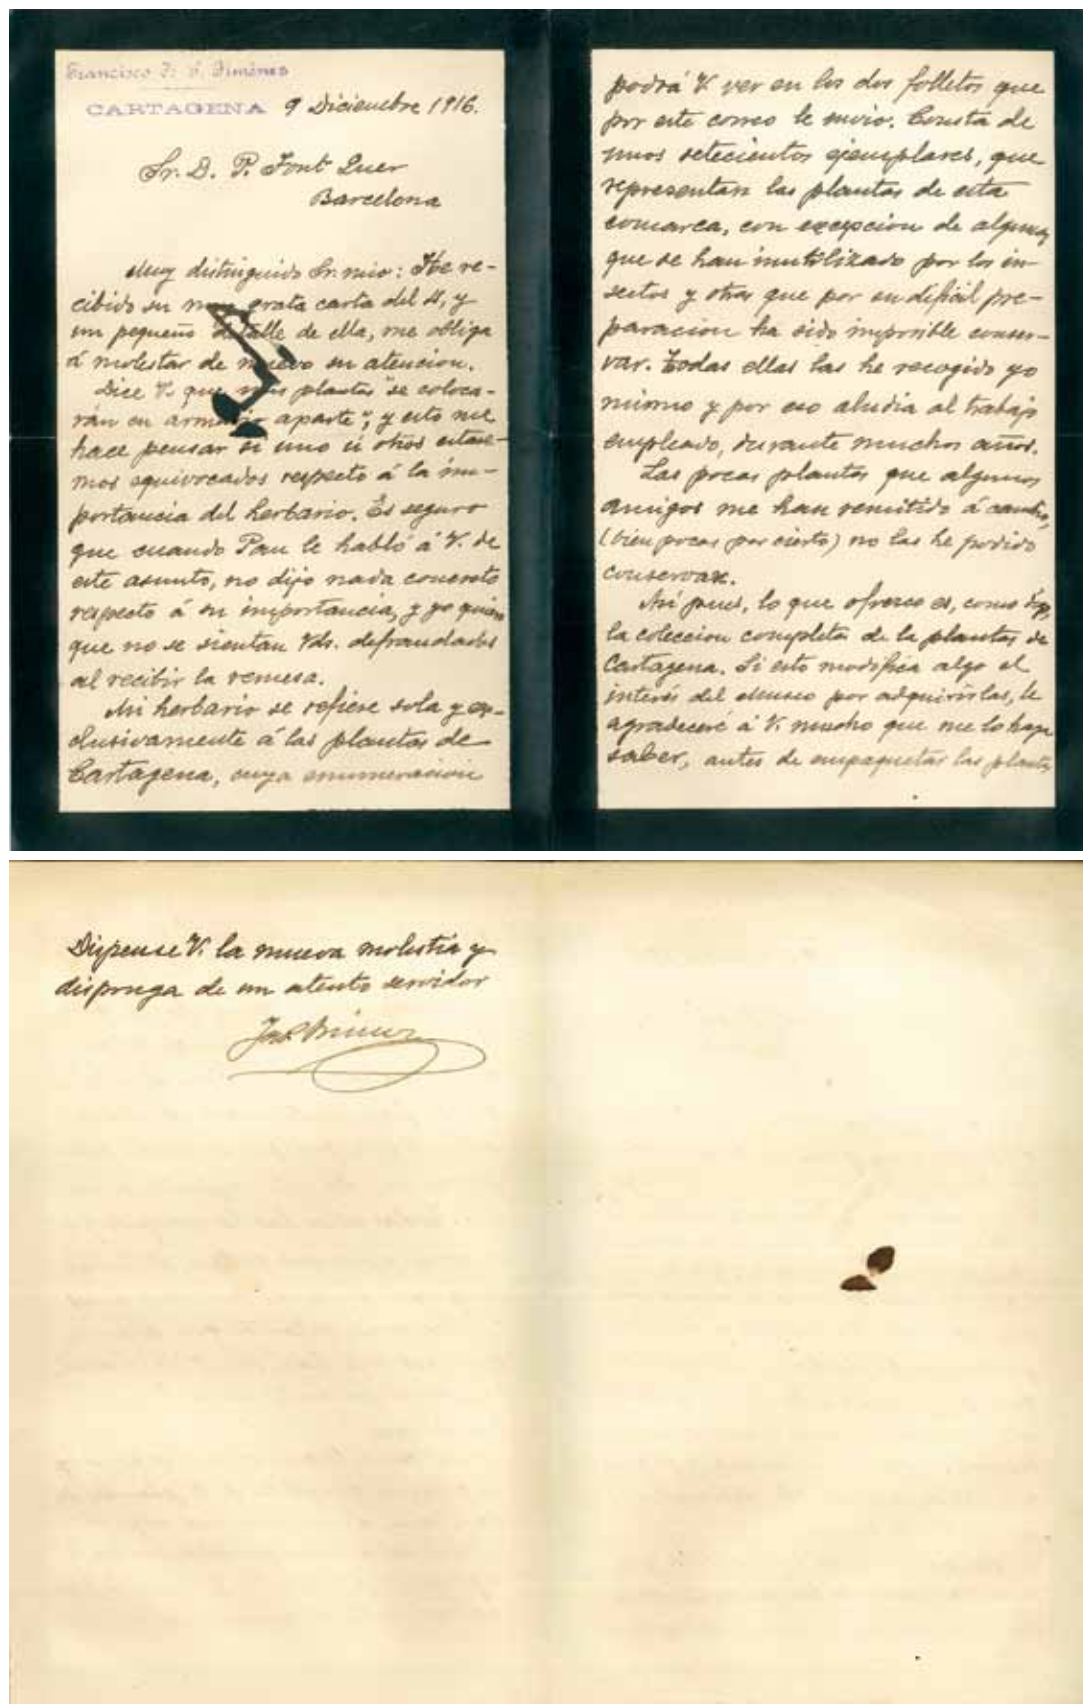 Francisco de P. Jiménez
CARTAGENA 9 Diciembre 1916.
Sr. D. P. Font Quer
Barcelona
Muy distinguido Sr. mio: He re-
cibido su muy grata carta del 4, y
un pequeño detalle de ella, me obliga
á molestar de nuevo su atencion.
Dice V. que mis plantas "se coloca-
rán en armario aparte", y esto me
hace pensar si uno ú otros estare-
mos equivocados respecto á la im-
portancia del herbario. Es seguro
que cuando Pau le habló á V. de
este asunto, no dijo nada concreto
respecto á su importancia, y yo quiero
que no se sientan Vds. defraudados
al recibir la remesa.
Mi herbario se refiere sola y ex-
clusivamente á las plantas de
Cartagena, cuya enumeracion
podrá V. ver en los dos folletos que
por este correo le envio. Consta de
unos setecientos ejemplares, que
representan las plantas de esta
comarca, con excepcion de algunas
que se han inutilizado por los in-
sectos y otras que por su dificil pre-
paracion ha sido imposible conser-
var. Todas ellas las he recogido yo
mismo y por eso aludia al trabajo
empleado, durante muchos años.
Las pocas plantas que algunos
amigos me han remitido á cambio,
(bien pocas por cierto) no las he podido
conservar.
Asi pues, lo que ofrezco es, como digo,
la coleccion completa de la plantas de
Cartagena. Si esto modifica algo el
interés del Museo por adquirirlas, le
agradeceré á V. mucho que me lo haga
saber, antes de empaquetar las plantas
Dispense V. la nueva molestia y
disponga de un atento servidor